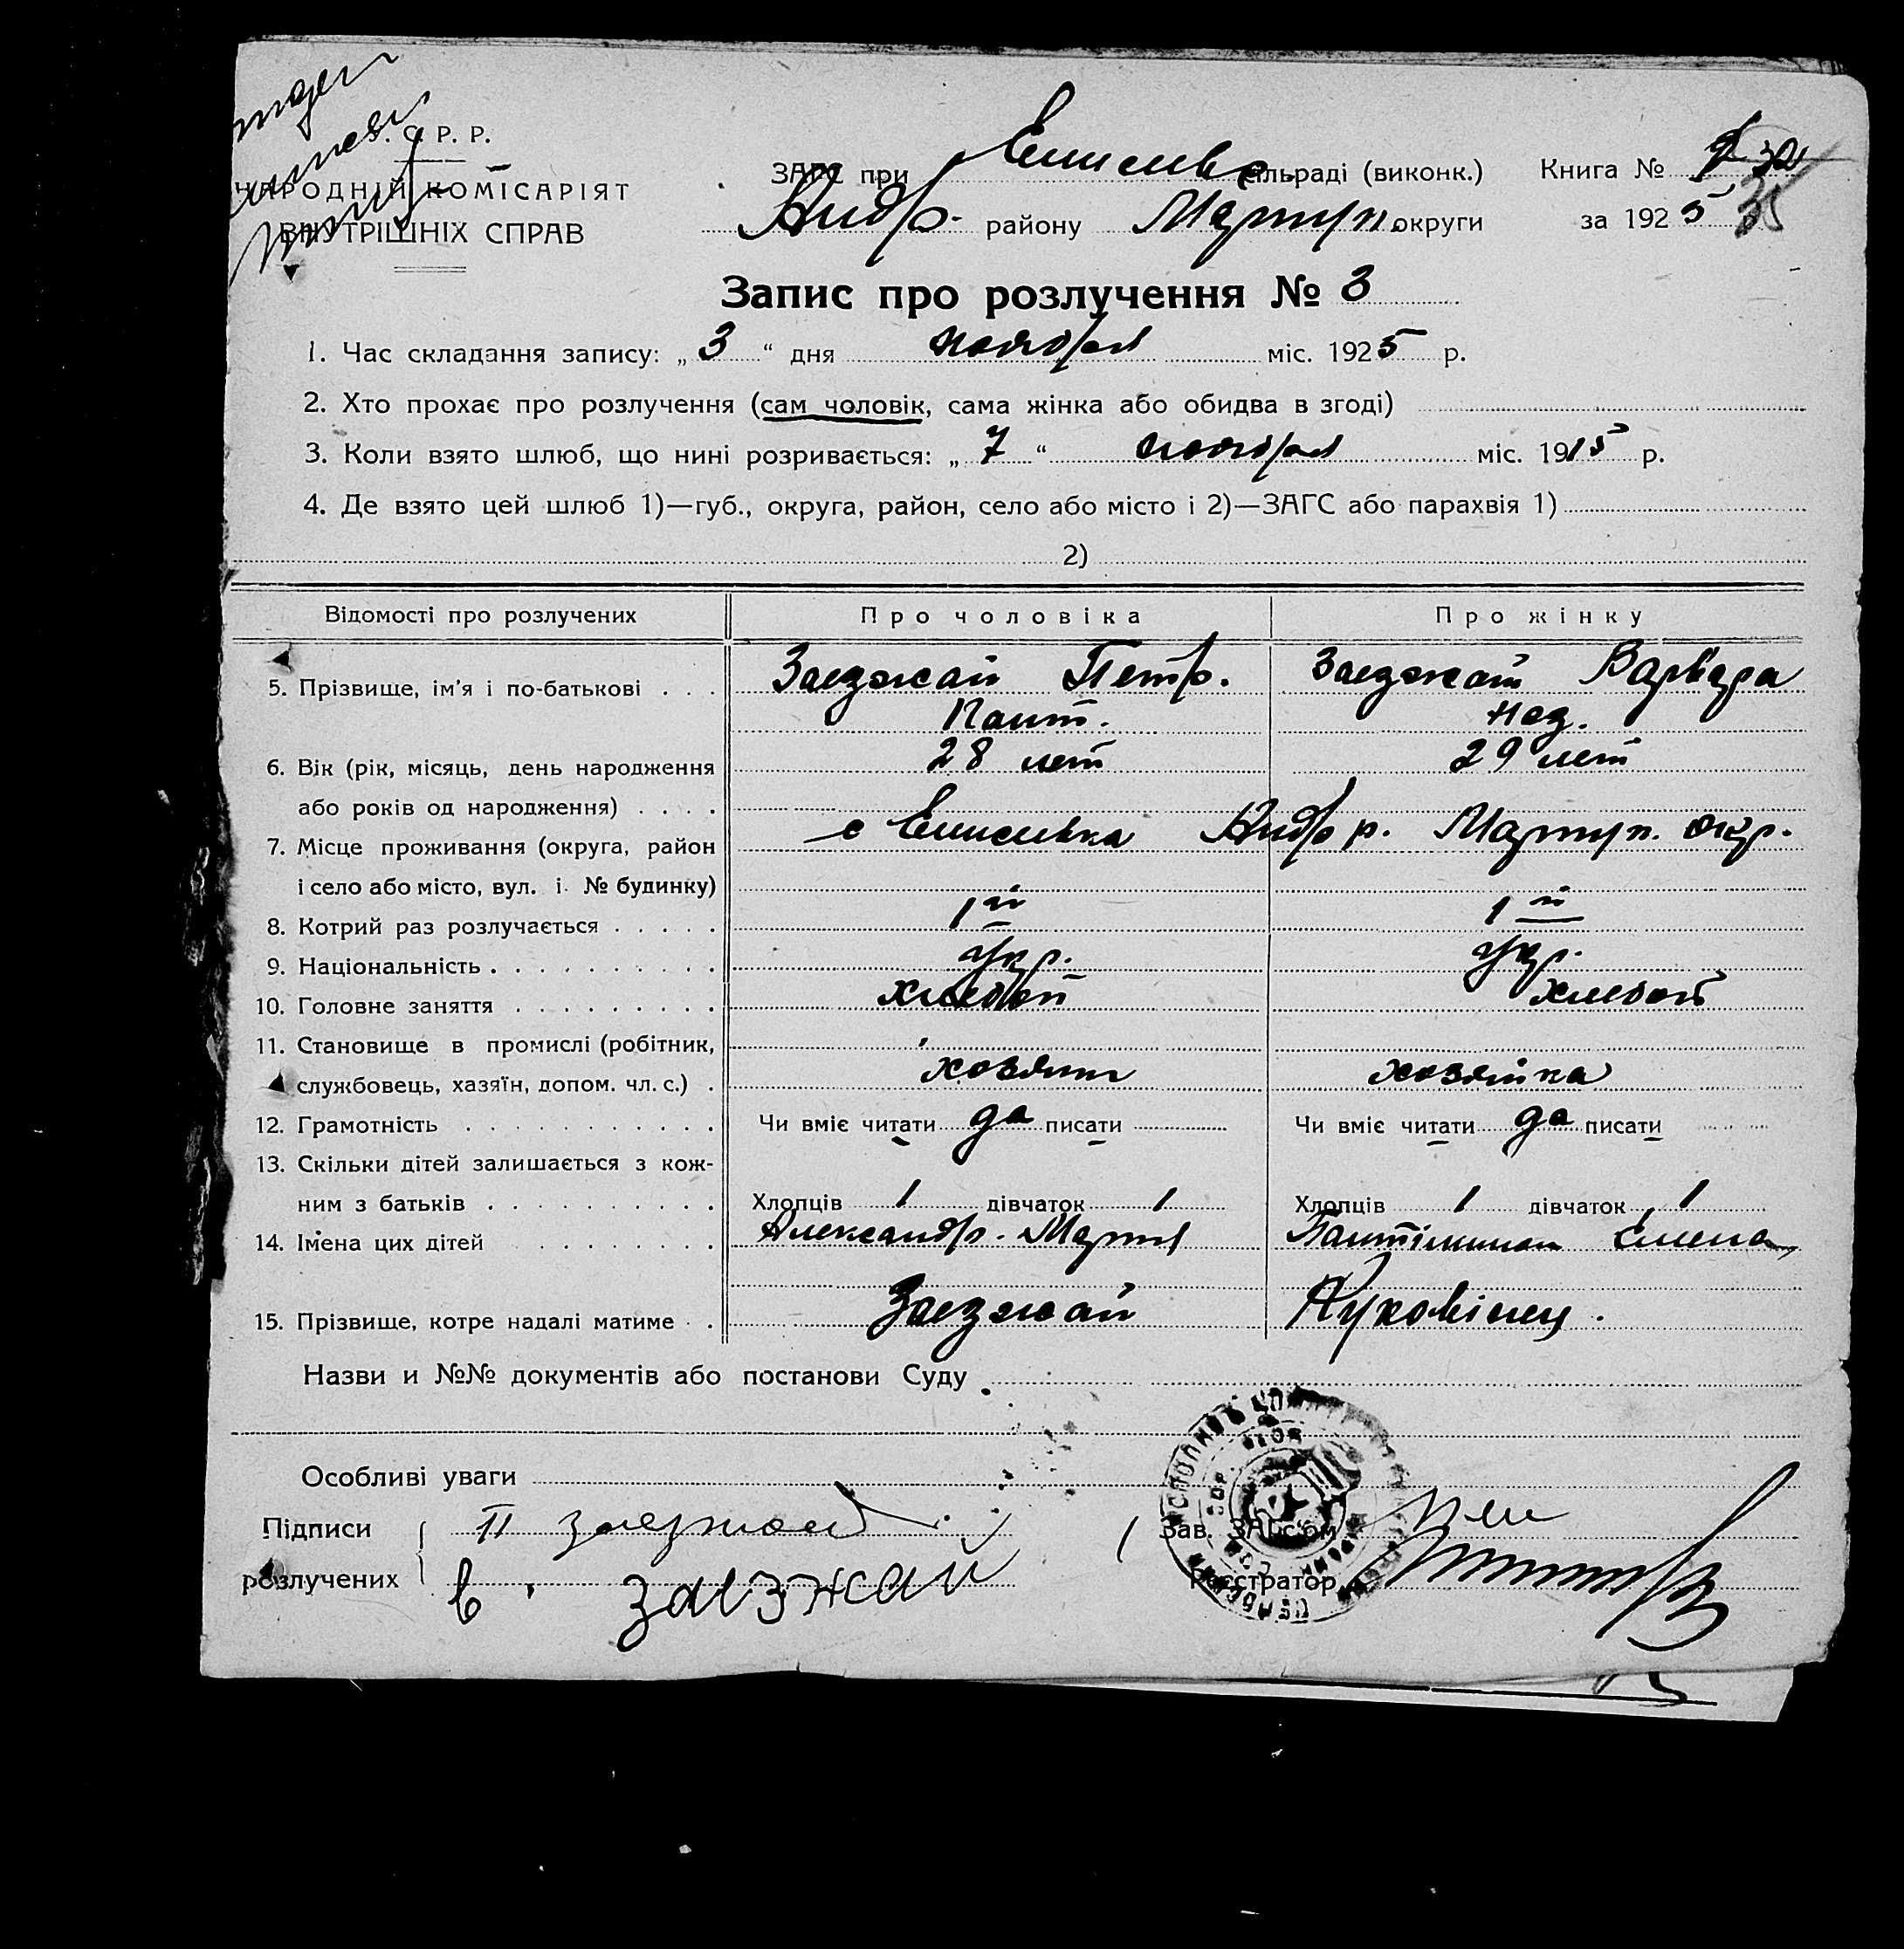 С. Р. Р.
НАРОДНІЙ КОМІСАРІЯТ
ВНУТРІШНІХ СПРАВ
ЗАГС при Елисеевс сільраді (виконк.) Книга №
Андр. району Мариуп. округи за 1925
Запис про розлучення № 3
1. Час складання запису: „3“ дня ноября міс. 1925 р.
2. Хто прохає про розлучення (сам чоловік, сама жінка або обидва в згоді)
3. Коли взято шлюб, що нині розривається: „7“ ноября міс. 1915 р.
4. Де взято цей шлюб 1)—губ., округа, район, село або місто і 2)—ЗАГС або парахвія 1)
2)
Відомості про розлучених Про чоловіка Про жінку
5. Прізвище, ім'я і по-батькові . . . Заезжай Петр. Заезжай Варвара
Пант.
6. Вік (рік, місяць, день народження 28 лет 29 лет
або років од народження) . . . .
7. Місце проживання (округа, район с Елисеевка Андр р. Мариуп. окр.
і село або місто, вул. і № будинку)
8. Котрий раз розлучається . . . . . 1й 1й
9. Національність . . . . . . . . . . укр. укр.
10. Головне заняття . . . . . . . . . хлебоп хлебоп
11. Становище в промислі (робітник,
службовець, хазяїн, допом. чл. с.) . хозяин хозяйка
12. Грамотність . . . . . . . . . . . Чи вміє читати да писати Чи вміє читати да писати
13. Скільки дітей залишається з кож-
ним з батьків . . . . . . . . . . Хлопців 1 дівчаток 1 Хлопців 1 дівчаток 1
14. Імена цих дітей . . . . . . . . Александр. Мария Елена
15. Прізвище, котре надалі матиме . . Заезжай
Назви и №№ документів або постанови Суду
Особливі уваги
Підписи П Заезжай Зав. ЗАГС'ом
розлучених в. заезжай Реєстратор